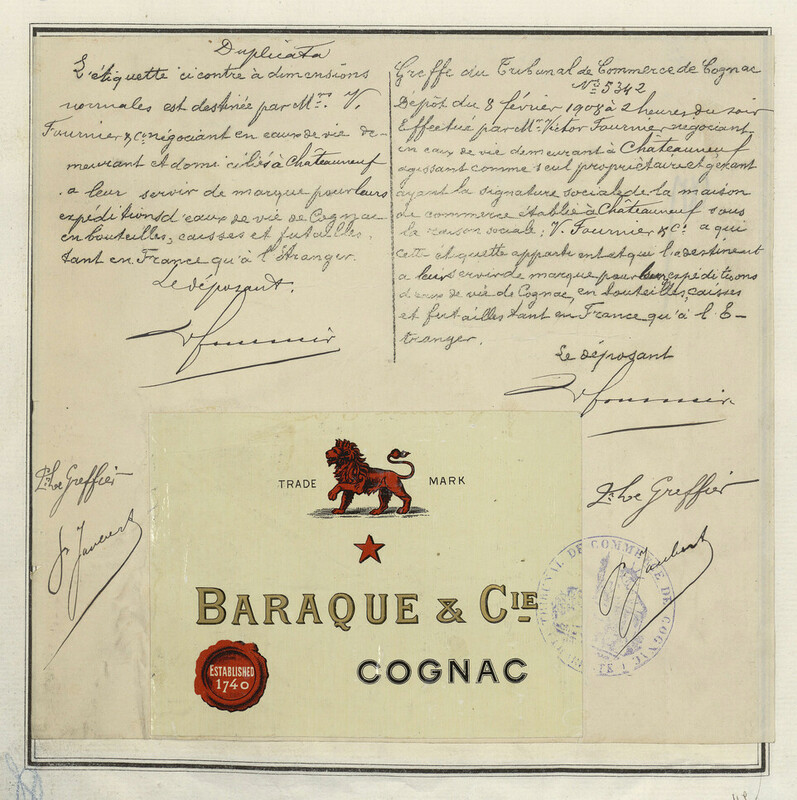 Duplicata
L'étiquette ci contre à dimensions
normales est destinée par Mr. V.
Fournier & Cie négociant en eaux de vie de-
meurant et domiciliés à Châteauneuf
a leur servir de marque pour leurs
expéditions d'eaux de vie de Cognac
en bouteilles, caisses et futailles,
tant en France qu'à l'étranger.
Le déposant.
V fournier
Greffe du Tribunal de Commerce de Cognac
No 5342
Dépôt du 8 février 1908 à 2 heures du soir
Effectué par Mr. Victor Fournier negociant
en eaux de vie demeurant à Châteauneuf
agissant comme seul propriétaire et gérant
ayant la signature sociale de la maison
de commerce établie à Châteauneuf sous
la raison sociale: V. Fournier & Cie a qui
cette étiquette appartient et qui la destinent
a leur servir de marque pour leurs expéditions
d'eaux de vie de Cognac, en bouteilles, caisses
et futailles tant en France qu'à l'E-
tranger.
Le déposant
V fournier
Pr. Le Greffier
Pr. Le Greffier
TRADE MARK
BARAQUE & CIE
COGNAC
ESTABLISHED
1740
TRIBUNAL DE COMMERCE DE COGNAC